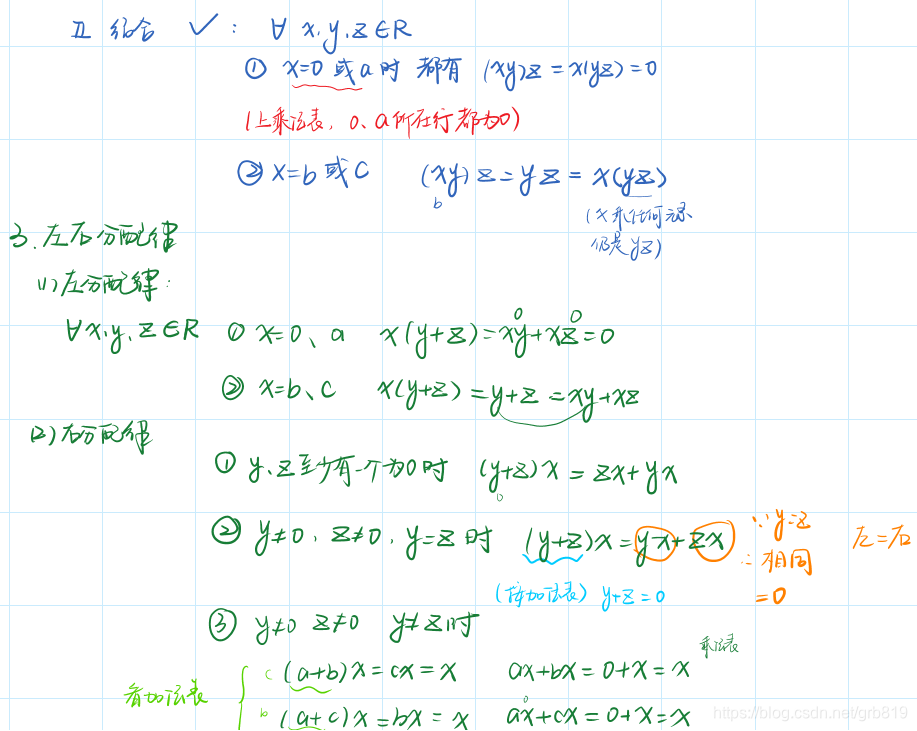 II 结合 ✓: ∀ x,y,z∈R
① x=0 或a时 都有 (xy)z = x(yz)=0
(上乘法表, 0、a所在行都为0)
② x=b 或 c (xy)z=yz = x(yz)
b
(x乘任何元素
仍是yz)
3. 左右分配律
(1) 左分配律:
∀x,y,z∈R ① x=0、a x(y+z)=xy+xz=0
0 0
② x=b、c x(y+z)=y+z=xy+xz
(2) 右分配律
① y、z至少有一个为0时 (y+z)x = zx+yx
0
② y≠0, z≠0, y=z 时 (y+z)x=yx+zx ∵y=z 左=右
∴相同
(按加法表) y+z=0 =0
③ y≠0 z≠0 y≠z时
乘法表
看加法表 { c (a+b)x=cx=x ax+bx=0+x=x
0
b (a+c)x=bx=x ax+cx=0+x=x
https://blog.csdn.net/grb819